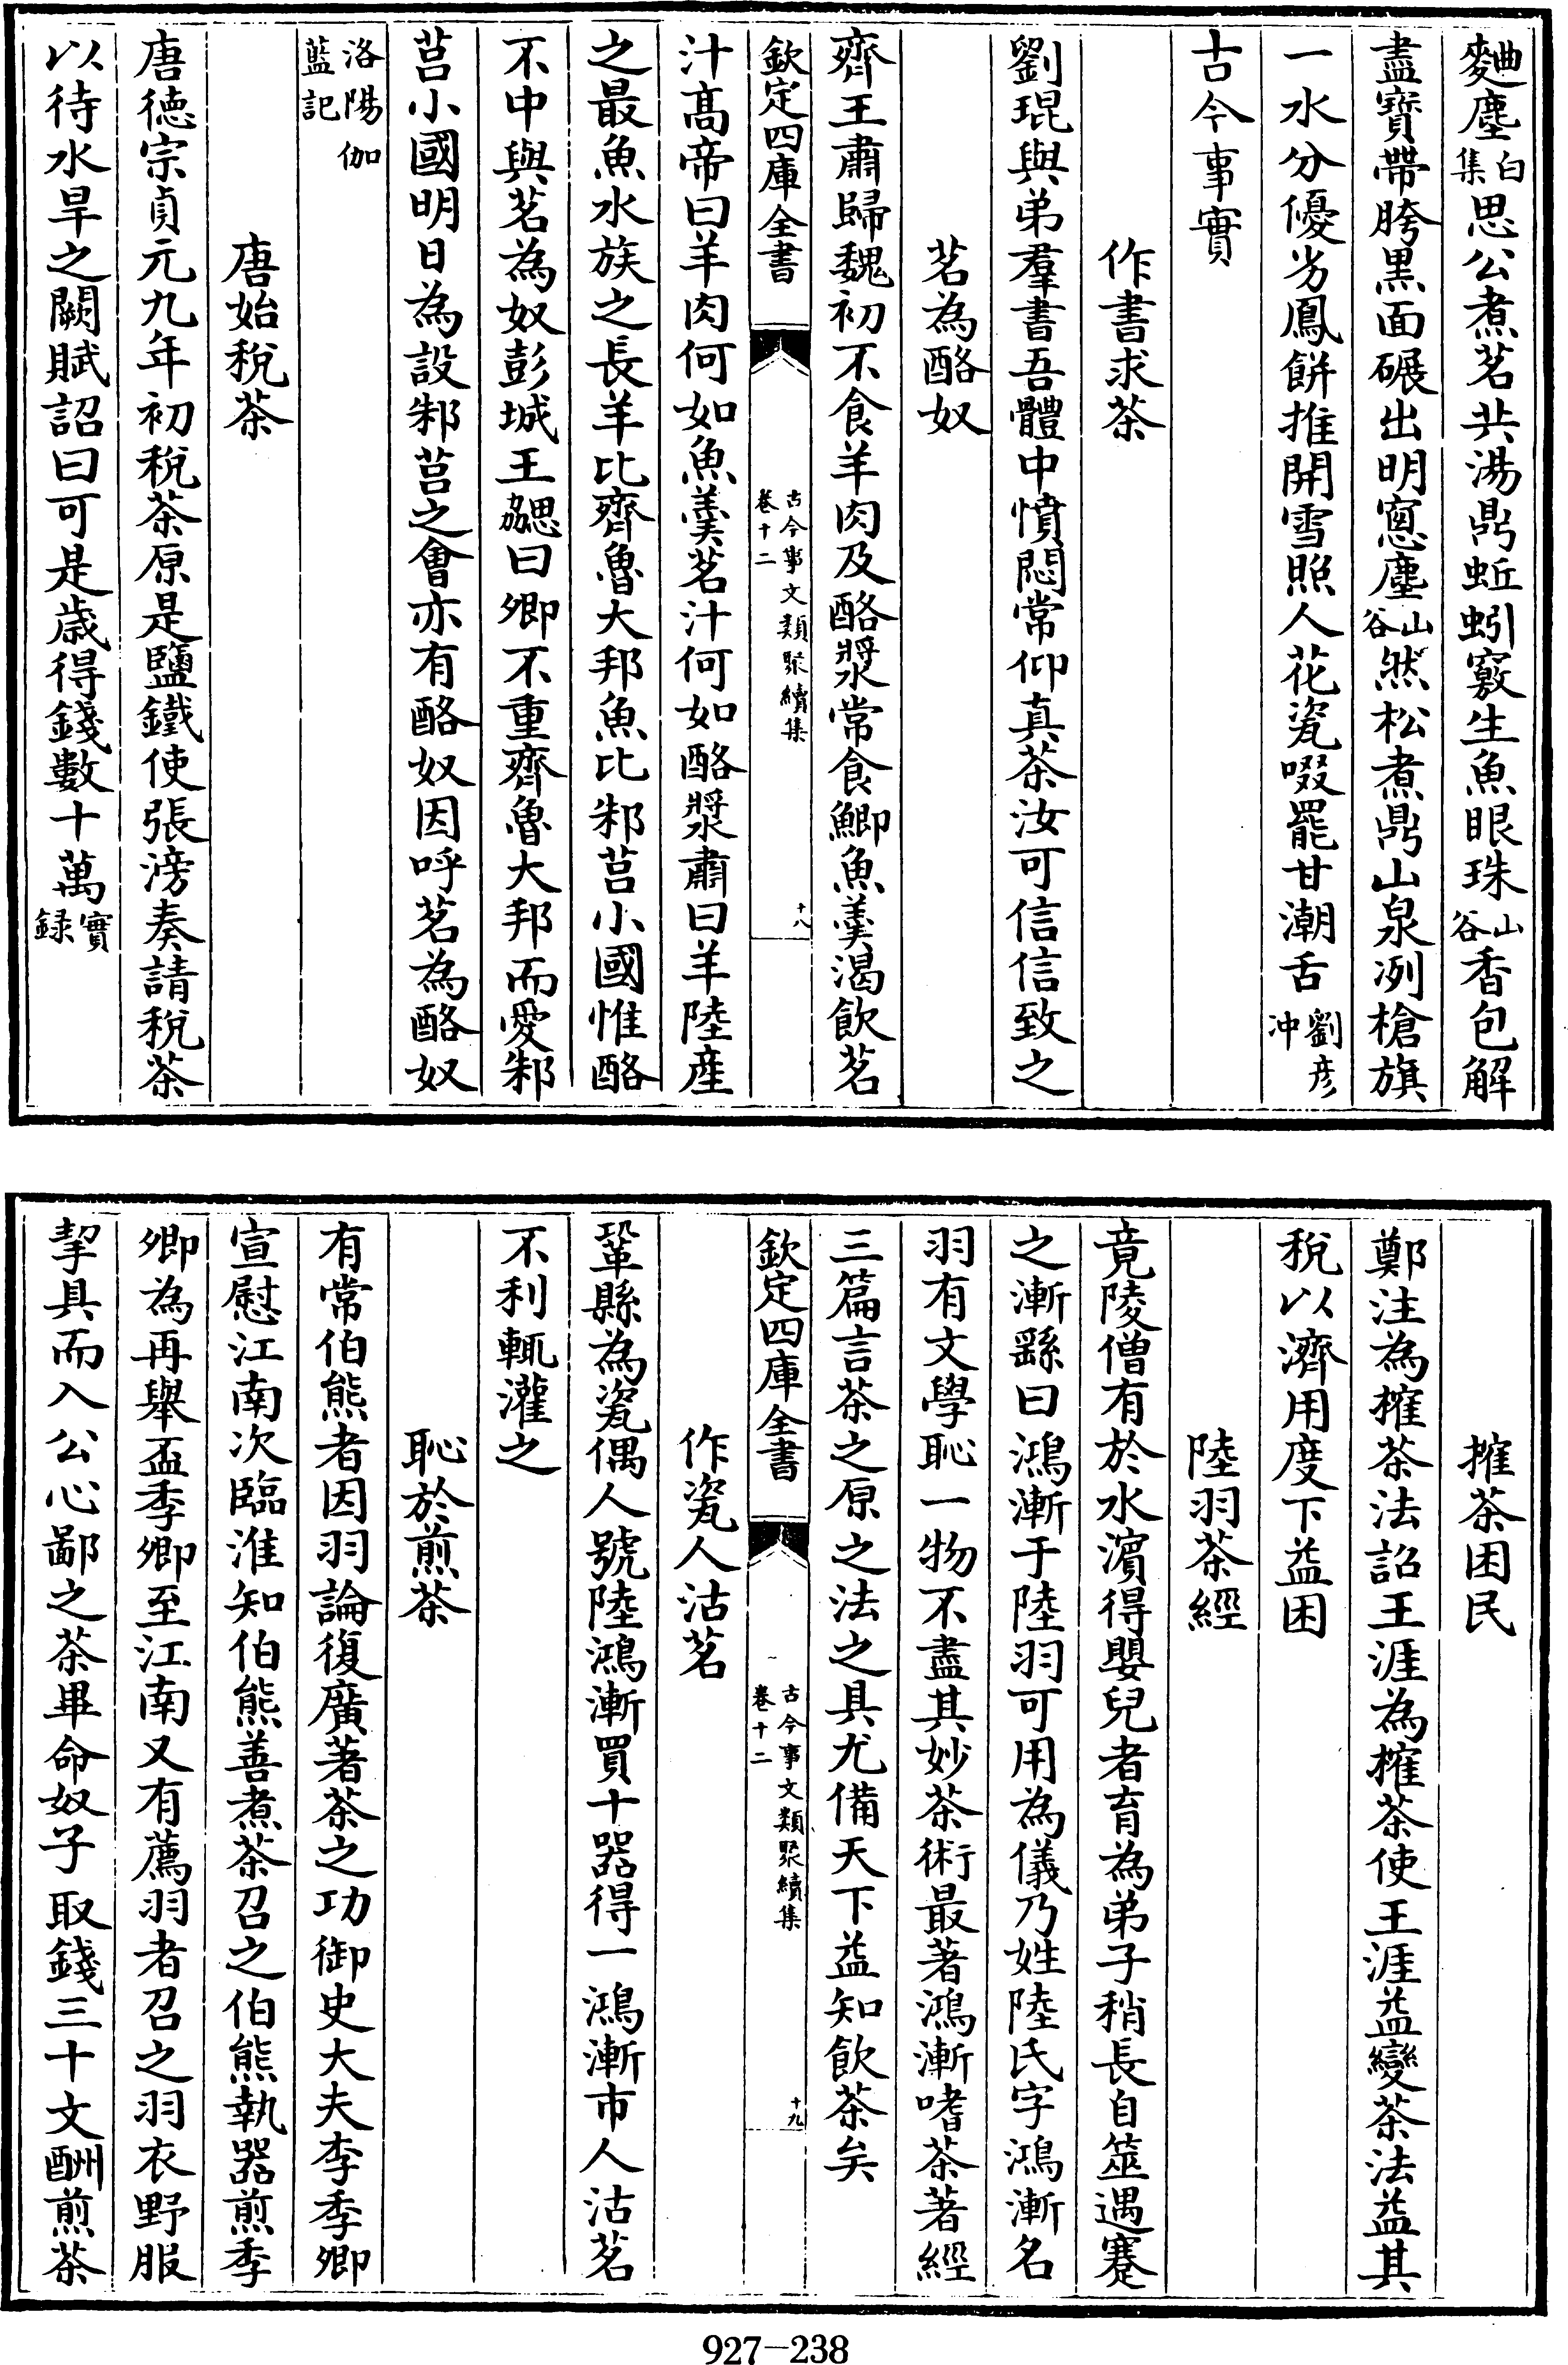 麴塵白集思公煮茗共湯鼎蚯蚓竅生魚眼珠山谷香包解
盡寳帶胯黒面碾出明窓塵山谷然松煮鼎山泉冽槍旗
一水分優劣鳳餅推開雪照人花瓷啜罷甘潮舌劉彦冲
古今事實
作書求茶
劉琨與弟羣書吾體中憤悶常仰真茶汝可信信致之
茗為酪奴
齊王肅歸魏初不食羊肉及酪漿常食鯽魚羹渴飲茗
欽定四庫全書
古今事文類聚續集
卷十二
十八
汁髙帝曰羊肉何如魚羹茗汁何如酪漿肅曰羊陸産
之最魚水族之長羊比齊魯大邦魚比邾莒小國惟酪
不中與茗為奴彭城王勰曰卿不重齊魯大邦而愛邾
莒小國明日為設邾莒之會亦有酪奴因呼茗為酪奴
洛陽伽藍記
唐始稅茶
唐徳宗貞元九年初稅茶原是鹽鐵使張滂奏請稅茶
以待水旱之闕賦詔曰可是歳得錢數十萬實録
搉茶困民
鄭注為搉茶法詔王涯為搉茶使王涯益變茶法益其
稅以濟用度下益困
陸羽茶經
竟陵僧有於水濵得嬰兒者育為弟子稍長自筮遇蹇
之漸繇曰鴻漸于陸羽可用為儀乃姓陸氏字鴻漸名
羽有文學恥一物不盡其妙茶術最著鴻漸嗜茶著經
三篇言茶之原之法之具尤備天下益知飲茶矣
欽定四庫全書
古今事文類聚續集
卷十二
十九
作瓷人沽茗
鞏縣為瓷偶人號陸鴻漸買十器得一鴻漸市人沽茗
不利輒灌之
恥於煎茶
有常伯熊者因羽論復廣著茶之功御史大夫李季卿
宣慰江南次臨淮知伯熊善煮茶召之伯熊執器煎季
卿為再舉盃季卿至江南又有薦羽者召之羽衣野服
挈具而入公心鄙之茶畢命奴子取錢三十文酬煎茶
927-238